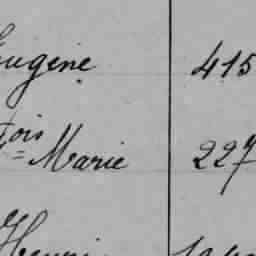 Eugène 415
Fçois=Marie 227
Henri